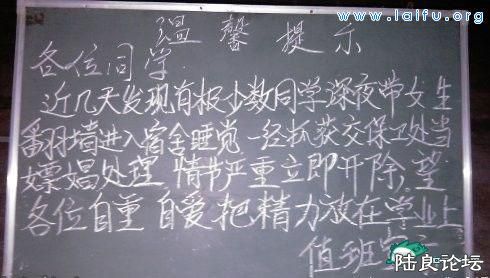 www.laifu.org
温馨提示
各位同学
近几天发现有极少数同学深夜带女生
翻墙进入宿舍睡觉 一经抓获交保卫处当
嫖娼处理,情节严重立即开除,望
各位自重 自爱把精力放在学业上
值班室
陆良论坛